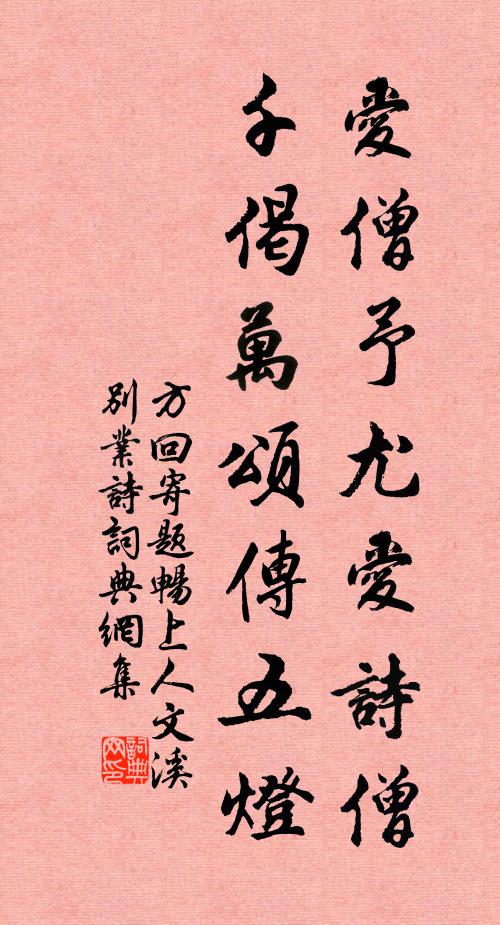 愛僧予尤愛詩僧
千偈萬頌傳五燈
方回寄題暢上人文溪
別業詩詞典網集
詞典網印